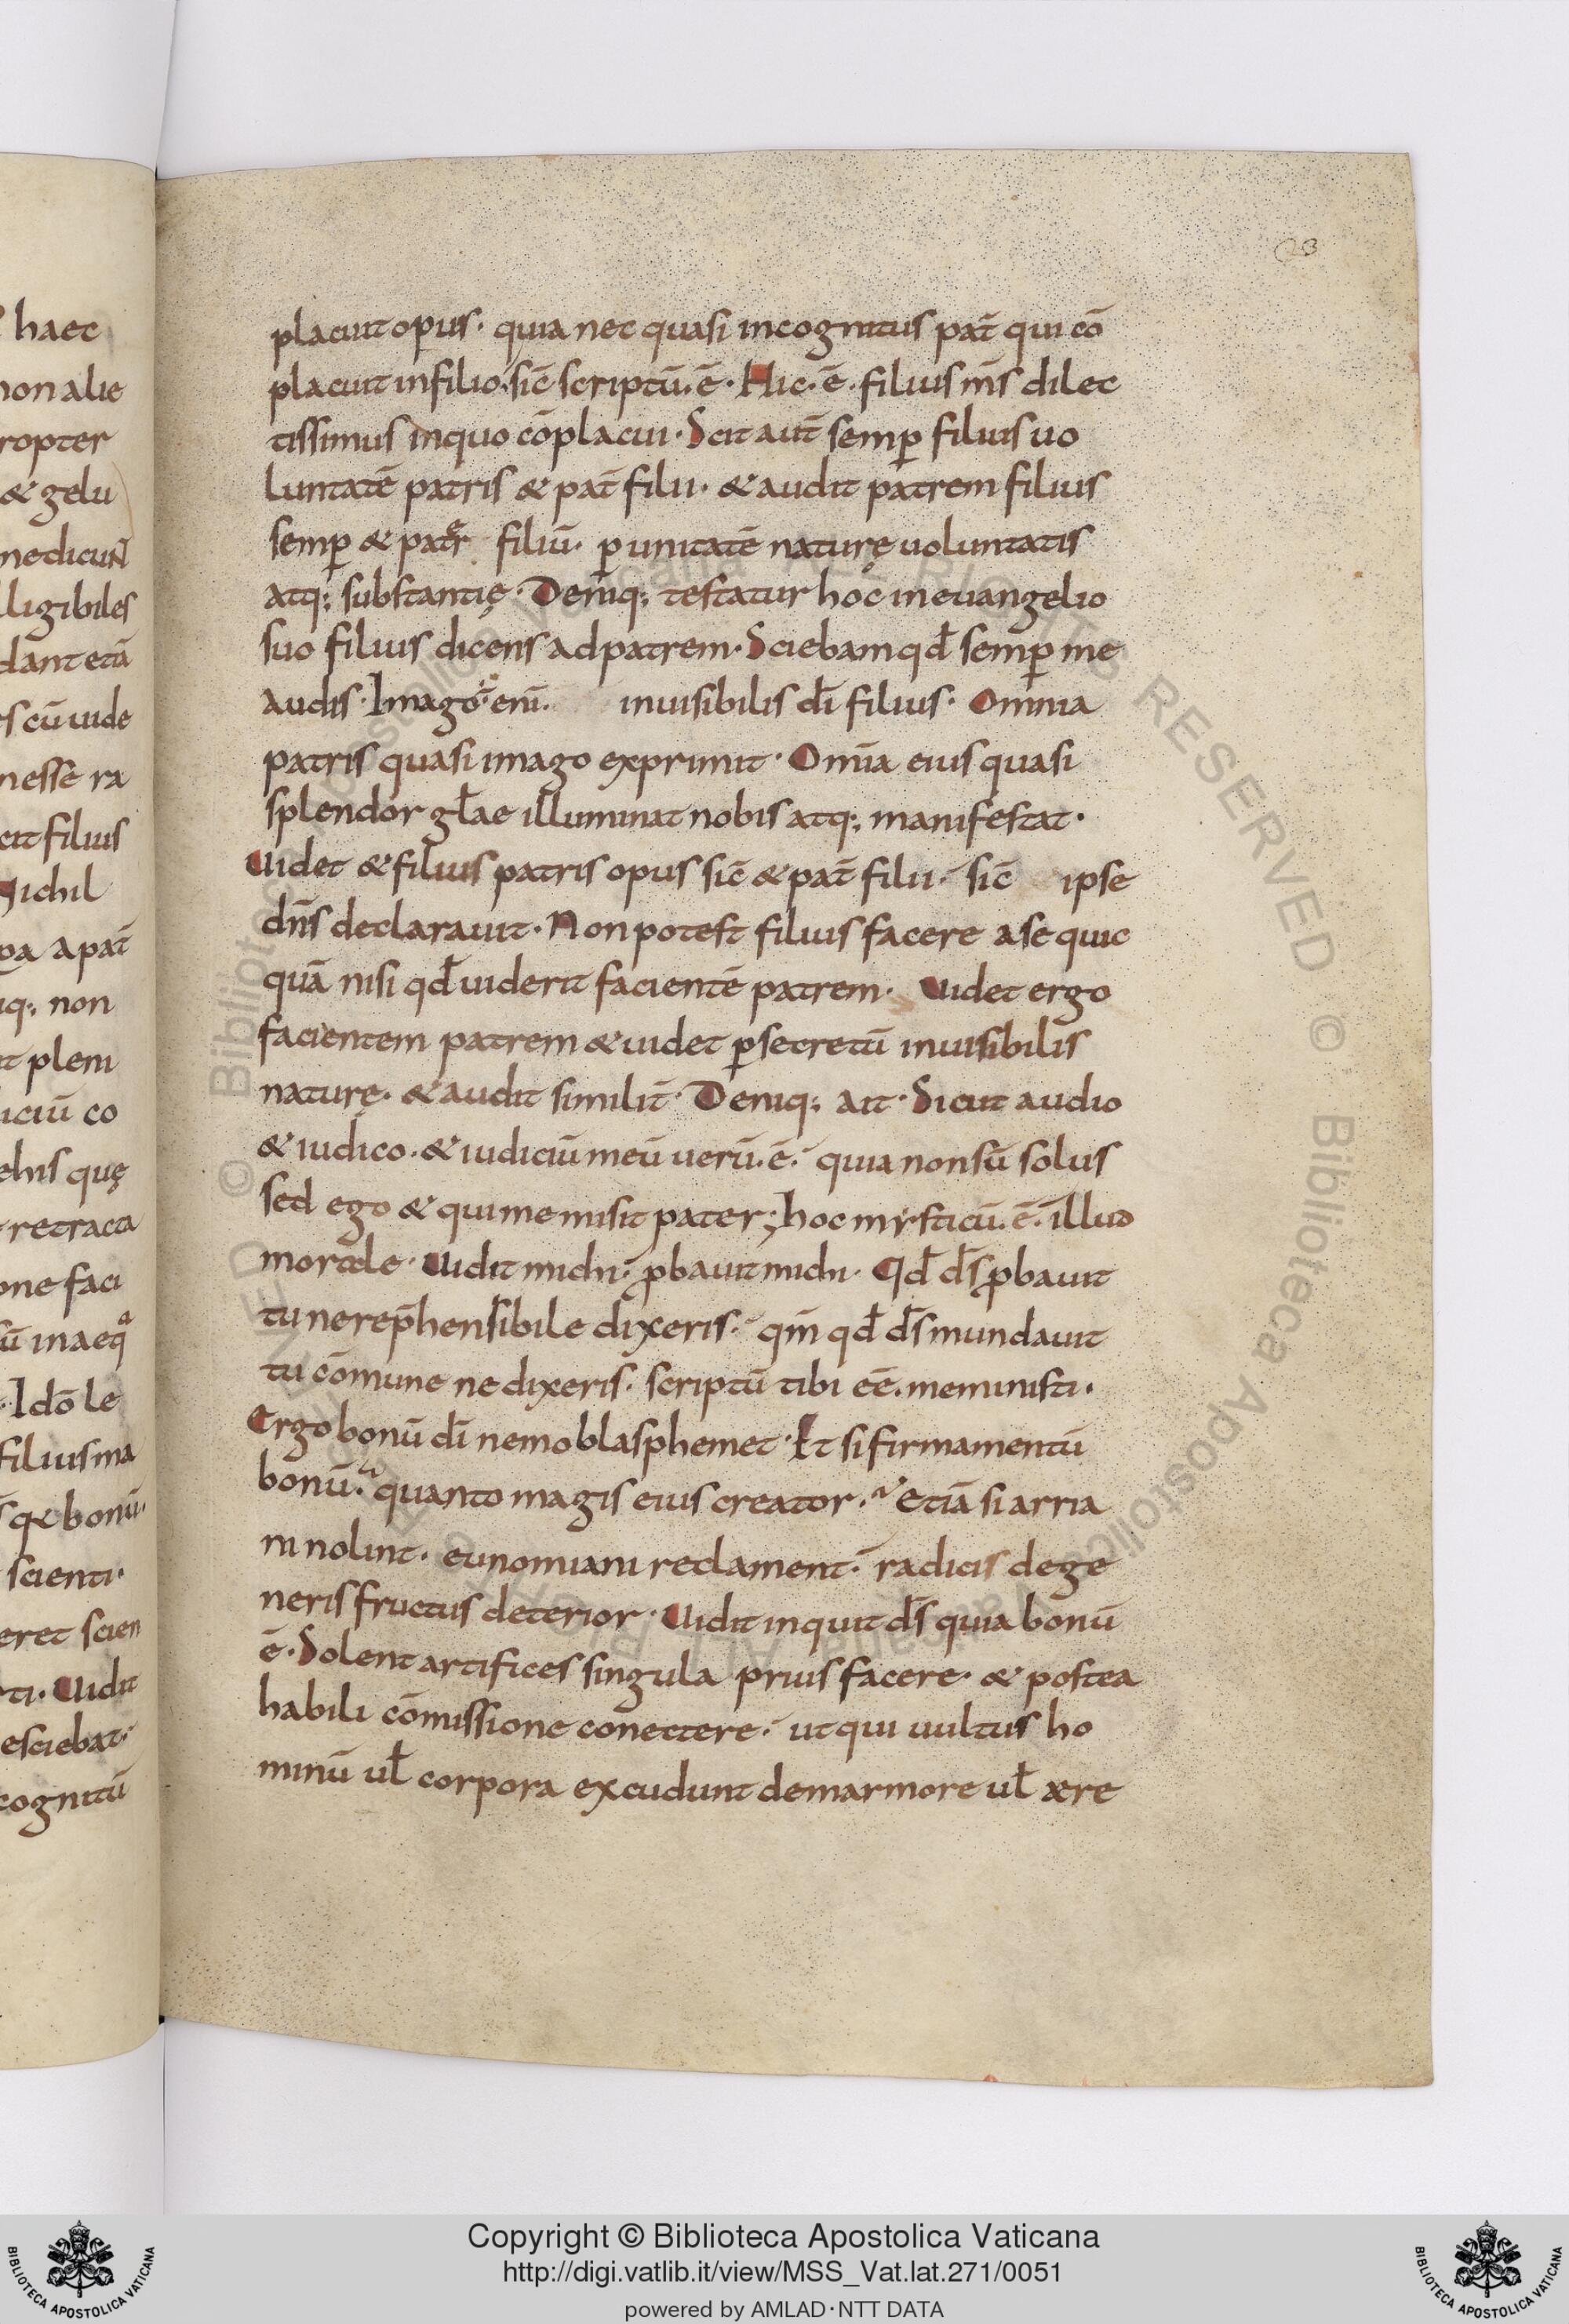 haec
non alie
ropter
& gelu
nedicuN
lligibiles
dant etā
s cū uide
nesse ra
cit filius
Nichil
apat̄
iq; non
t pleni
iciū co
ehis quę
retracta
one faci
ū inaeqª
Idō le
filius ma
bonū·
scienti·
eret scien
ti· Uidit
esciebat·
cognitū
23
placuit opus· quia nec quasi incognitus pat̄ qui cō
placuit infilio· sic̄ scriptū·ē· Hic·ē· filius m̄s dilec
tissimus inquo cōplacui· Scit aut̄ semꝑ filius uo
luntatē patris & pat̄ filii· & audit patrem filius
semꝑ & pater filiū· ꝑ unitatē naturę uoluntatis
atq; substantię· Deniq; testatur hoc ineuangelio
suo filius dicens adpatrem· Sciebam qd̄ semꝑ me
audis· Imago·ē· eni̅· inuisibilis dī filius· Omnia
patris quasi imago exprimit· Omīa eius quasi
splendor gl̄ae illuminat nobis atq; manifestat·
Uidet & filius patris opus sic̄ & pat̄ filii· sic̄ ipse
dn̄s declarauit· Non potest filius facere ase quic
quā nisi qd̄ uiderit facientē patrem· Uidet ergo
facientem patrem & uidet ꝑsecretū inuisibilis
naturę· & audit similit̄· Deniq; ait· Sicut audio
& iudico· & iudiciū meū uerū·ē· quia nonsū solus
sed ego & quime misit pater; hoc mysticū·ē· illud
morale· Uidit michi· ꝓbauit michi· Qd̄ d̄s ꝓbauit
tu nerep̄hensibile dixeris· qm̄ qd̄ d̄s mundauit
tu cōmune ne dixeris· scriptū tibi eē· meministi·
Ergo bonū dī nemo blasphemet· Et si firmamentū
bonū· quanto magis eius creator· Etiā si arria
ni nolint· eunomiani reclament· radicis dege
neris fructus deterior· Uidit inquit d̄s quia bonū
ē· Solent artifices singula prius facere· & postea
habili cōmissione conectere· ut qui uultus ho
minū ul̄ corpora excudunt demarmore ul̄ ære
© Biblioteca Apostolica Vaticana ALL RIGHTS RESERVED © Biblioteca Apostolica Vaticana ALL RIGHTS RESERVED
Copyright © Biblioteca Apostolica Vaticana
http://digi.vatlib.it/view/MSS_Vat.lat.271/0051
powered by AMLAD·NTT DATA
BIBLIOTECA APOSTOLICA VATICANA
BIBLIOTECA APOSTOLICA VATICANA